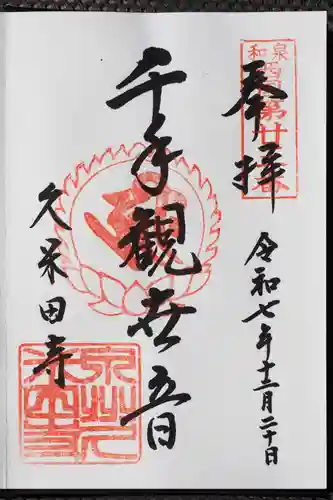 奉拝
和泉
西国第廿
番
令和七年十二月二十日
千手觀世音
久米田寺
泉州久米田寺